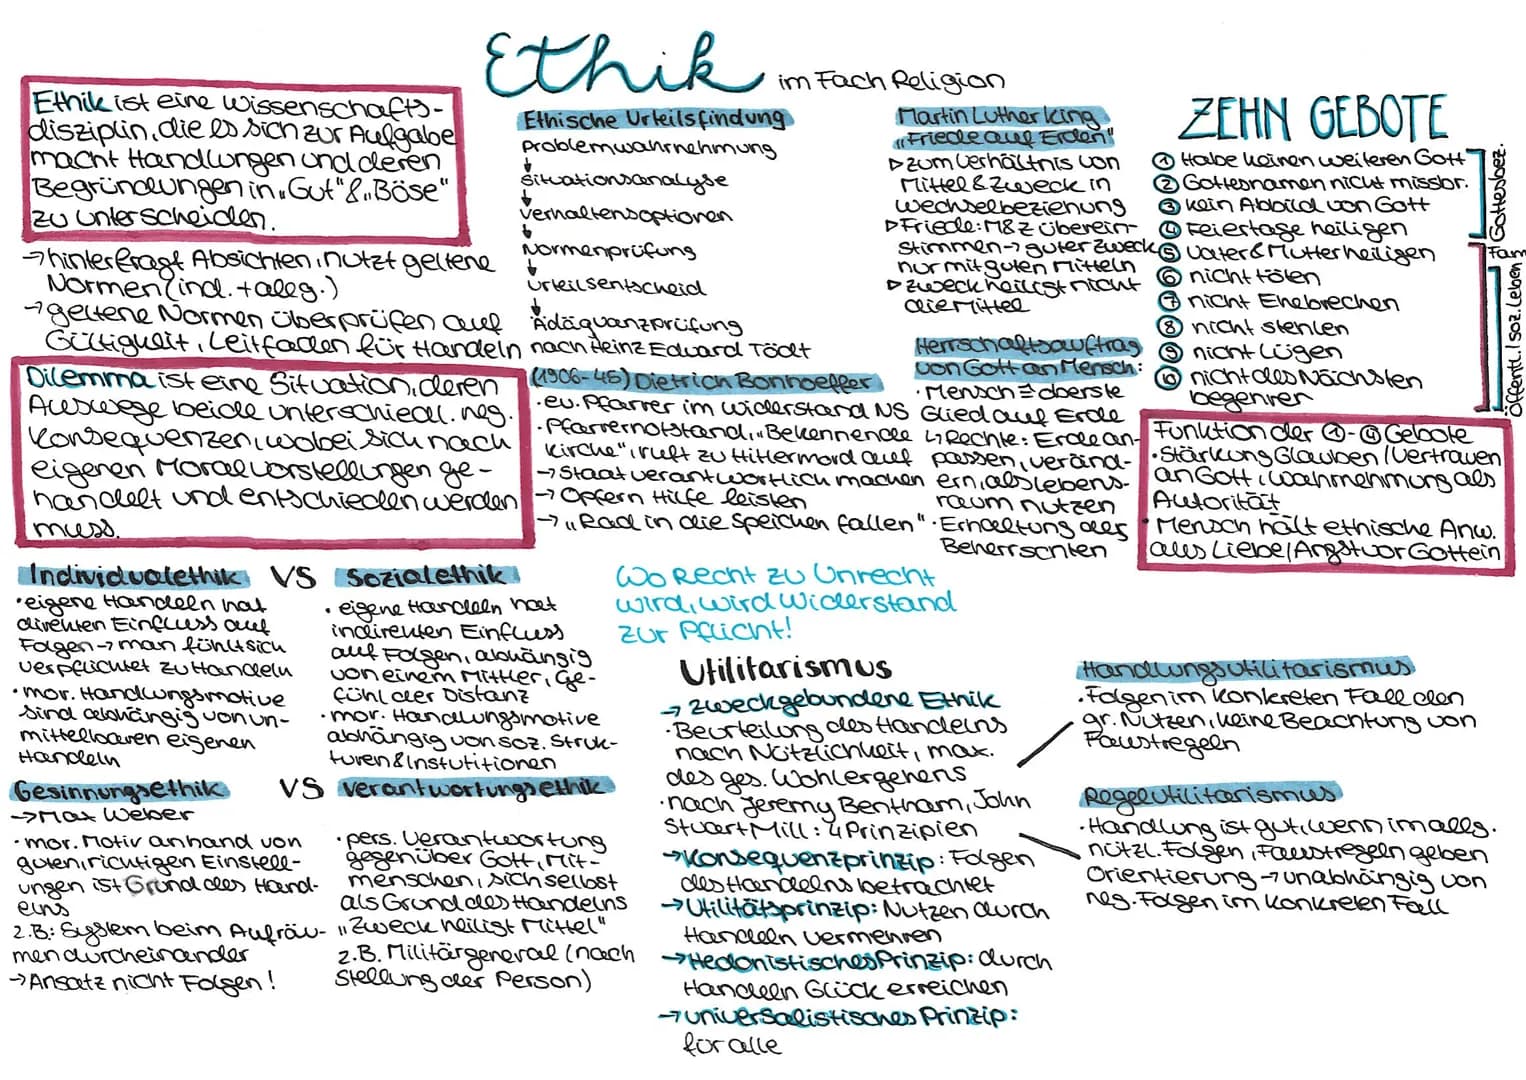 Ethik im Fach Religion
Ethik ist eine Wissenschafts-
disziplin, die es sich zur Aufgabe
macht Handlungen und deren
Begründungen in „Gut" & „Böse"
zu unterscheiden.
→ hinterfragt Absichten, nutzt geltene
Normen (ind. + allg.)
→ geltene Normen überprüfen auf
Gültigkeit, Leitfaden für Handeln
Dilemma ist eine Situation, deren
Auswege beide unterschiedl. neg.
Konsequenzen, wobei sich nach
eigenen Moralvorstellungen ge-
handelt und entschieden werden
muss.
Ethische Urteilsfindung
Problemwahrnehmung
↓
Situationsanalyse
↓
Verhaltensoptionen
↓
Normenprüfung
↓
Urteilsentscheid
↓
Adäquanzprüfung
nach Heinz Edward Tödt
(1906-45) Dietrich Bonhoeffer
· ev. Pfarrer im Widerstand NS
· Pfarrernotstand, „Bekennende
Kirche", ruft zu Hitlermord auf
→ Staat verantwortlich machen
→ Opfern Hilfe leisten
→ „Rad in die Speichen fallen"
Martin Luther King
„Friede auf Erden"
▷ zum Verhältnis von
Mittel & Zweck in
Wechselbeziehung
▷ Friede: M & Z überein-
stimmen → guter Zweck
nur mit guten Mitteln
▷ Zweck heiligt nicht
die Mittel
Herrschaftsauftrag
von Gott an Mensch:
· Mensch = oberste
Glied auf Erde
↳ Rechte: Erde an-
passen, veränd-
ern, als Lebens-
raum nutzen
· Erhaltung des
Beherrschten
ZEHN GEBOTE
① Habe keinen weiteren Gott
② Gottesnamen nicht missbr.
③ kein Abbild von Gott
④ Feiertage heiligen
⑤ Vater & Mutter heiligen
⑥ nicht töten
⑦ nicht Ehebrechen
⑧ nicht stehlen
⑨ nicht lügen
⑩ nicht des Nächsten
begehren
Gottesbez.
Fam
Öffentl. / soz. Leben
Funktion der ①-④ Gebote
· Stärkung Glauben / Vertrauen
an Gott, Wahrnehmung als
Autorität
· Mensch hält ethische Anw.
aus Liebe / Angst vor Gott ein
Individualethik VS Sozialethik
· eigene Handeln hat
direkten Einfluss auf
Folgen → man fühlt sich
verpflichtet zu Handeln
· mor. Handlungsmotive
sind abhängig von un-
mittelbaren eigenen
Handeln
· eigene Handeln hat
indirekten Einfluss
auf Folgen, abhängig
von einem Mittler, Ge-
fühl der Distanz
· mor. Handlungsmotive
abhängig von soz. Struk-
turen & Instutitionen
Gesinnungsethik VS Verantwortungsethik
→ Max Weber
· mor. Motiv anhand von
guten, richtigen Einstell-
ungen ist Grund des Hand-
elns
z.B.: System beim Aufräu-
men durcheinander
→ Ansatz nicht Folgen!
· pers. Verantwortung
gegenüber Gott, Mit-
menschen, sich selbst
als Grund des Handelns
„Zweck heiligt Mittel"
z.B. Militärgeneral (nach
Stellung der Person)
Wo Recht zu Unrecht
wird, wird Widerstand
zur Pflicht!
Utilitarismus
→ zweckgebundene Ethik
· Beurteilung des Handelns
nach Nützlichkeit, max.
des ges. Wohlergehens
· nach Jeremy Bentham, John
Stuart Mill: 4 Prinzipien
→ Konsequenzprinzip: Folgen
des Handelns betrachtet
→ Utilitätsprinzip: Nutzen durch
Handeln vermehren
→ Hedonistisches Prinzip: durch
Handeln Glück erreichen
→ universalistisches Prinzip:
für alle
Handlungsutilitarismus
· Folgen im konkreten Fall den
gr. Nutzen, keine Beachtung von
Faustregeln
Regelutilitarismus
· Handlung ist gut, wenn im allg.
nützl. Folgen, Faustregeln geben
Orientierung → unabhängig von
neg. Folgen im konkreten Fall